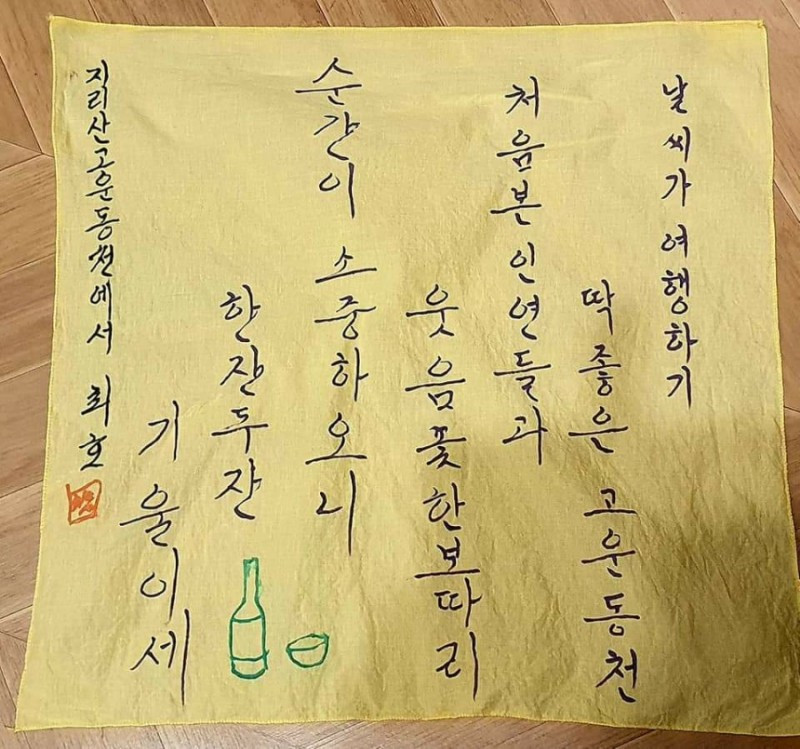 날씨가 여행하기
딱 좋은 고운동천
처음본 인연들과
웃음꽃 한보따리
순간이 소중하오니
한잔두잔
기울이세
지리산고운동천에서 최호